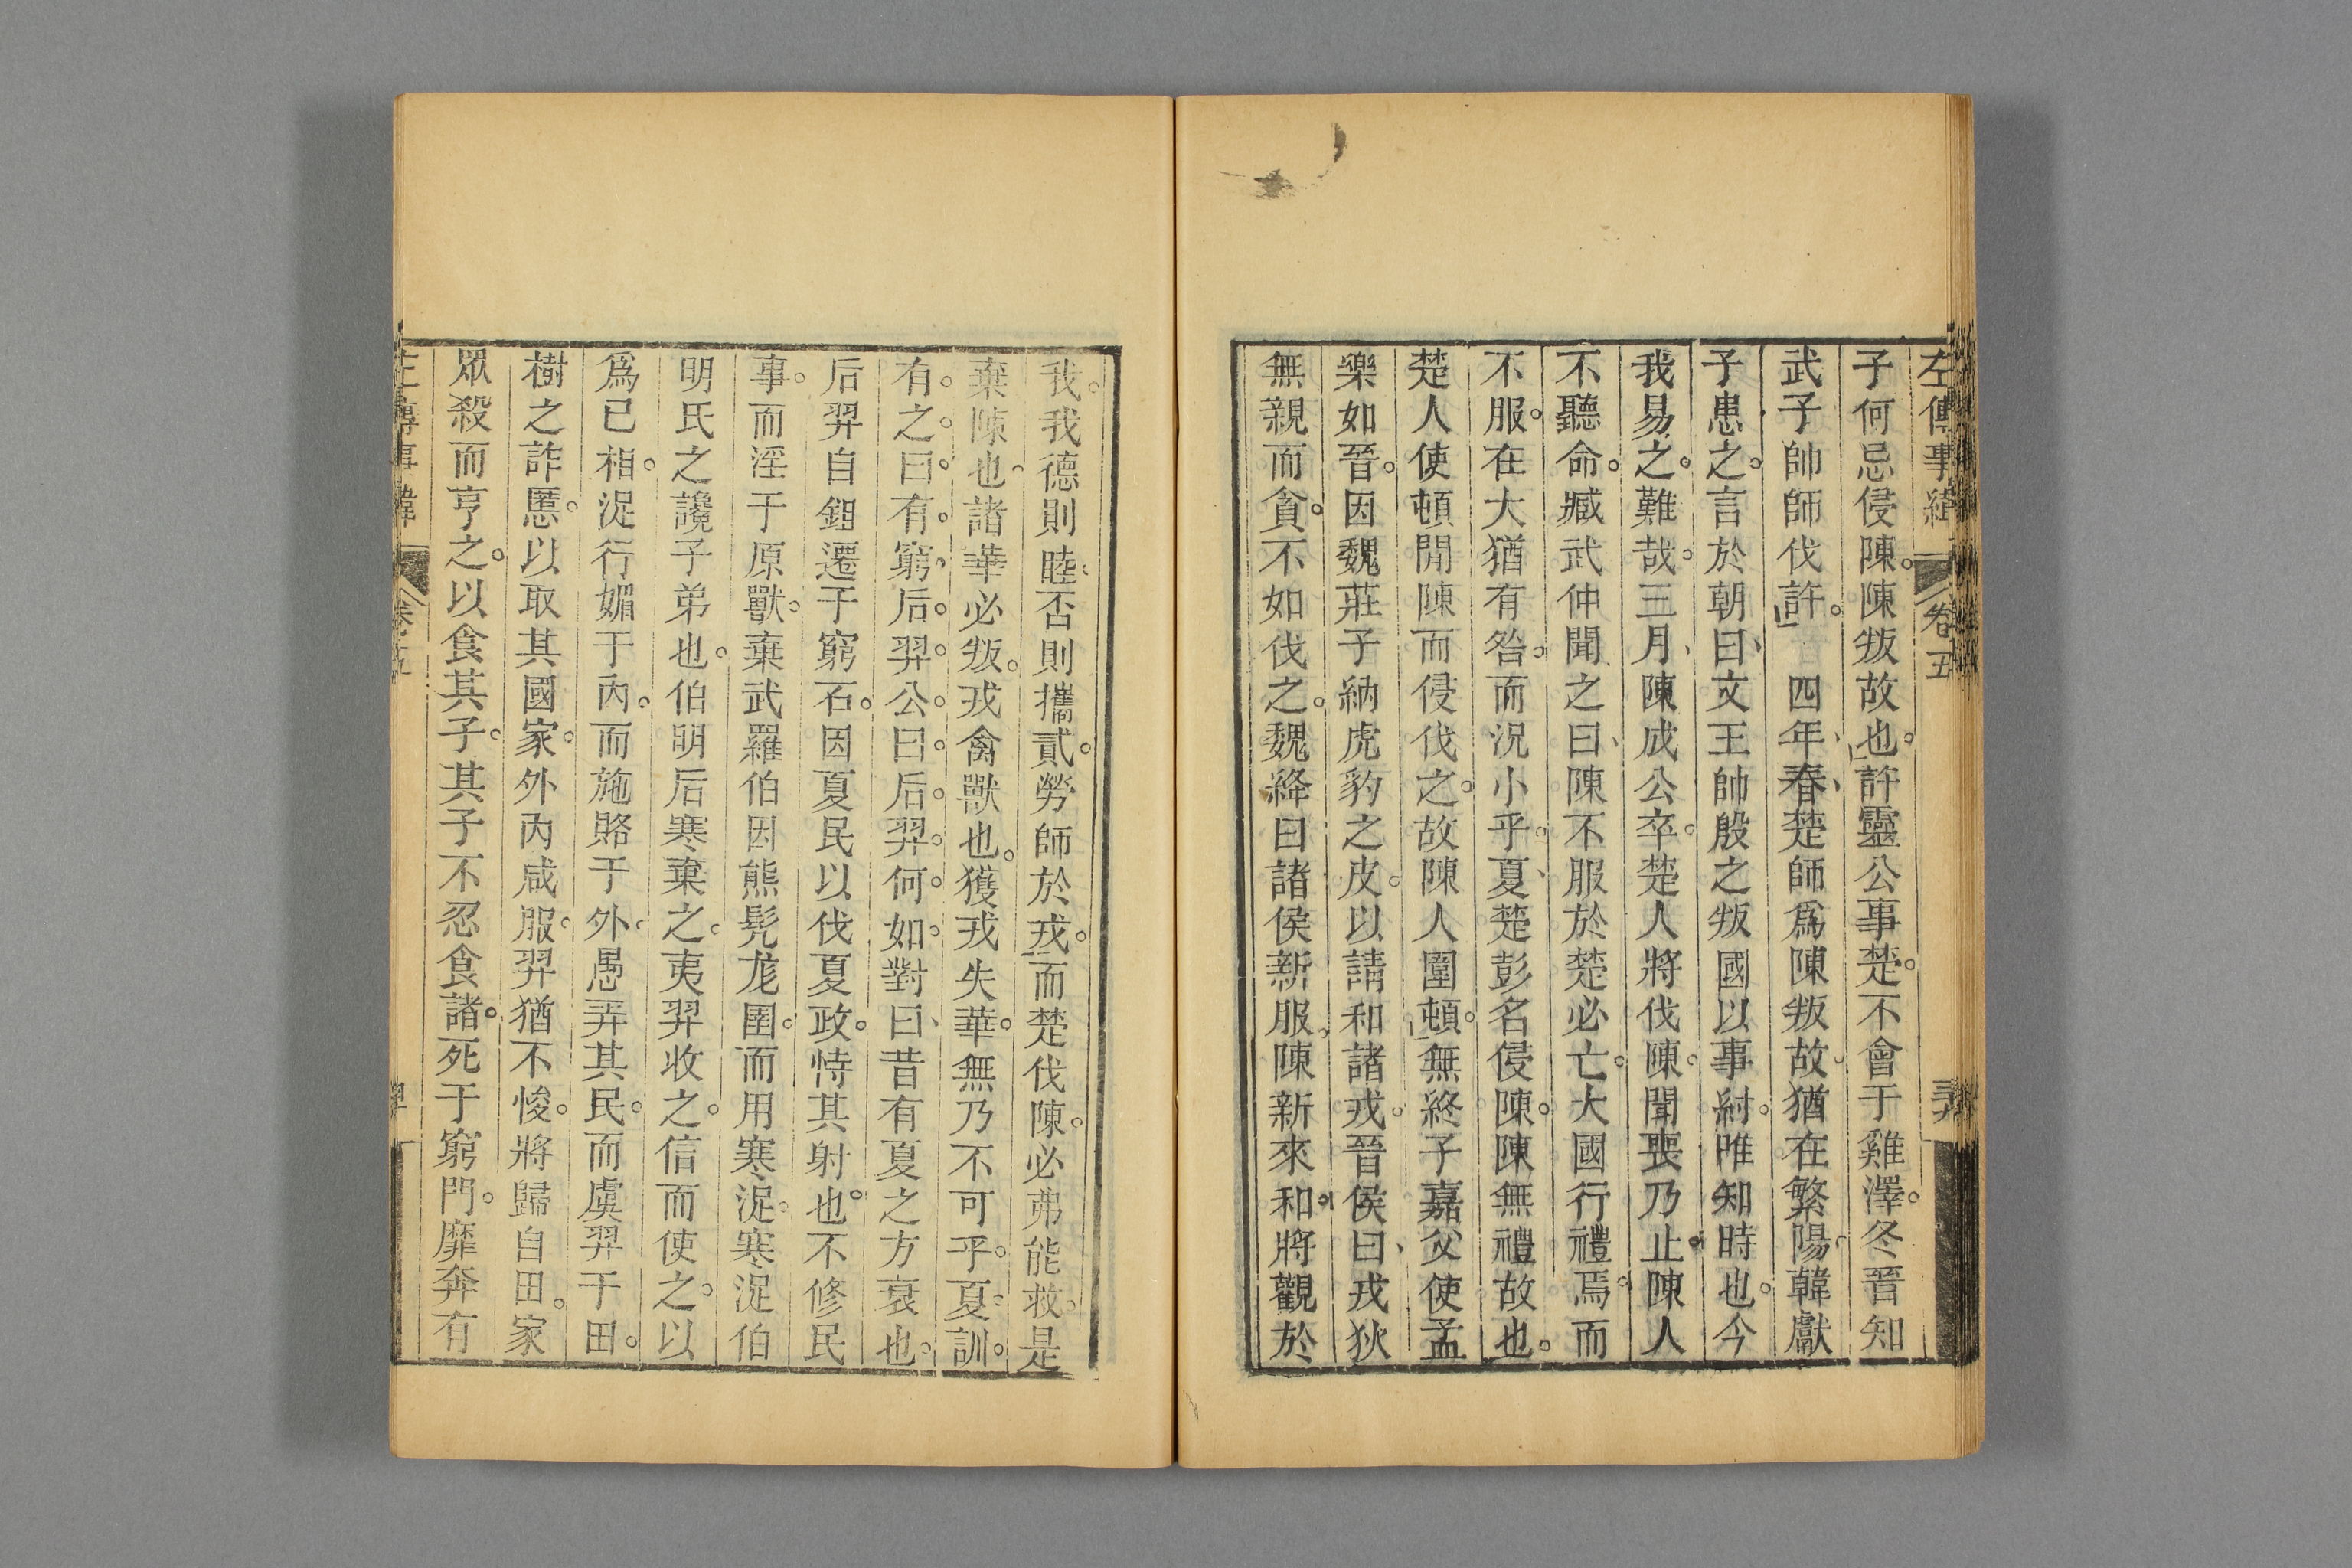 左傳事緯 卷五
子何忌侵陳陳叛故也許靈公事楚不會于雞澤冬晉知
武子帥師伐許 四年春楚師爲陳叛故猶在繁陽韓獻
子患之言於朝曰文王帥殷之叛國以事紂唯知時也今
我易之難哉三月陳成公卒楚人將伐陳聞喪乃止陳人
不聽命臧武仲聞之曰陳不服於楚必亡大國行禮焉而
不服在大猶有咎而況小乎夏楚彭名侵陳陳無禮故也
楚人使頓閒陳而侵伐之故陳人圍頓無終子嘉父使孟
樂如晉因魏莊子納虎豹之皮以請和諸戎晉侯曰戎狄
無親而貪不如伐之魏絳曰諸侯新服陳新來和將觀於
我我德則睦否則攜貳勞師於戎而楚伐陳必弗能救是
棄陳也諸華必叛戎禽獸也獲戎失華無乃不可乎夏訓
有之曰有窮后羿公曰后羿何如對曰昔有夏之方衰也
后羿自鉏遷于窮石因夏民以伐夏政恃其射也不修民
事而淫于原獸棄武羅伯因熊髡尨圉而用寒浞寒浞伯
明氏之讒子弟也伯明后寒棄之夷羿收之信而使之以
爲已相浞行媚于內而施賂于外愚弄其民而虞羿于田
樹之詐慝以取其國家外內咸服羿猶不悛將歸自田家
眾殺而亨之以食其子其子不忍食諸死于窮門靡奔有